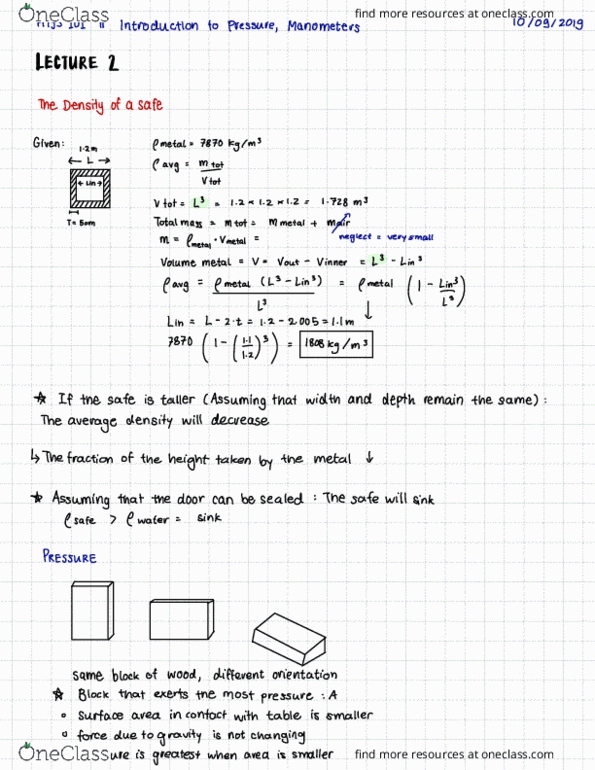 OneClass
find more resources at oneclass.com
Introduction to Pressure, Manometers
10/09/2019
LECTURE 2
The Density of a safe
Given:
1.2m
← L →
← Lin →
T = 5cm
ρmetal = 7870 kg/m³
ρavg = m tot / V tot
V tot = L³ = 1.2 × 1.2 × 1.2 = 1.728 m³
Total mass = m tot = m metal + m air
neglect = very small
m = ρmetal · Vmetal =
Volume metal = V = Vout - Vinner = L³ - Lin³
ρavg = ρmetal (L³ - Lin³) / L³ = ρmetal (1 - Lin³/L³)
Lin = L - 2·t = 1.2 - 2.005 = 1.1m
7870 (1 - (1.1/1.2)³) = 1808 kg/m³
☆ If the safe is taller (Assuming that width and depth remain the same) :
The average density will decrease
↳ The fraction of the height taken by the metal ↓
☆ Assuming that the door can be sealed : The safe will sink
ρsafe > ρwater = sink
PRESSURE
same block of wood, different orientation
☆ Block that exerts the most pressure : A
○ surface area in contact with table is smaller
○ force due to gravity is not changing
ure is greatest when area is smaller
OneClass
find more resources at oneclass.com